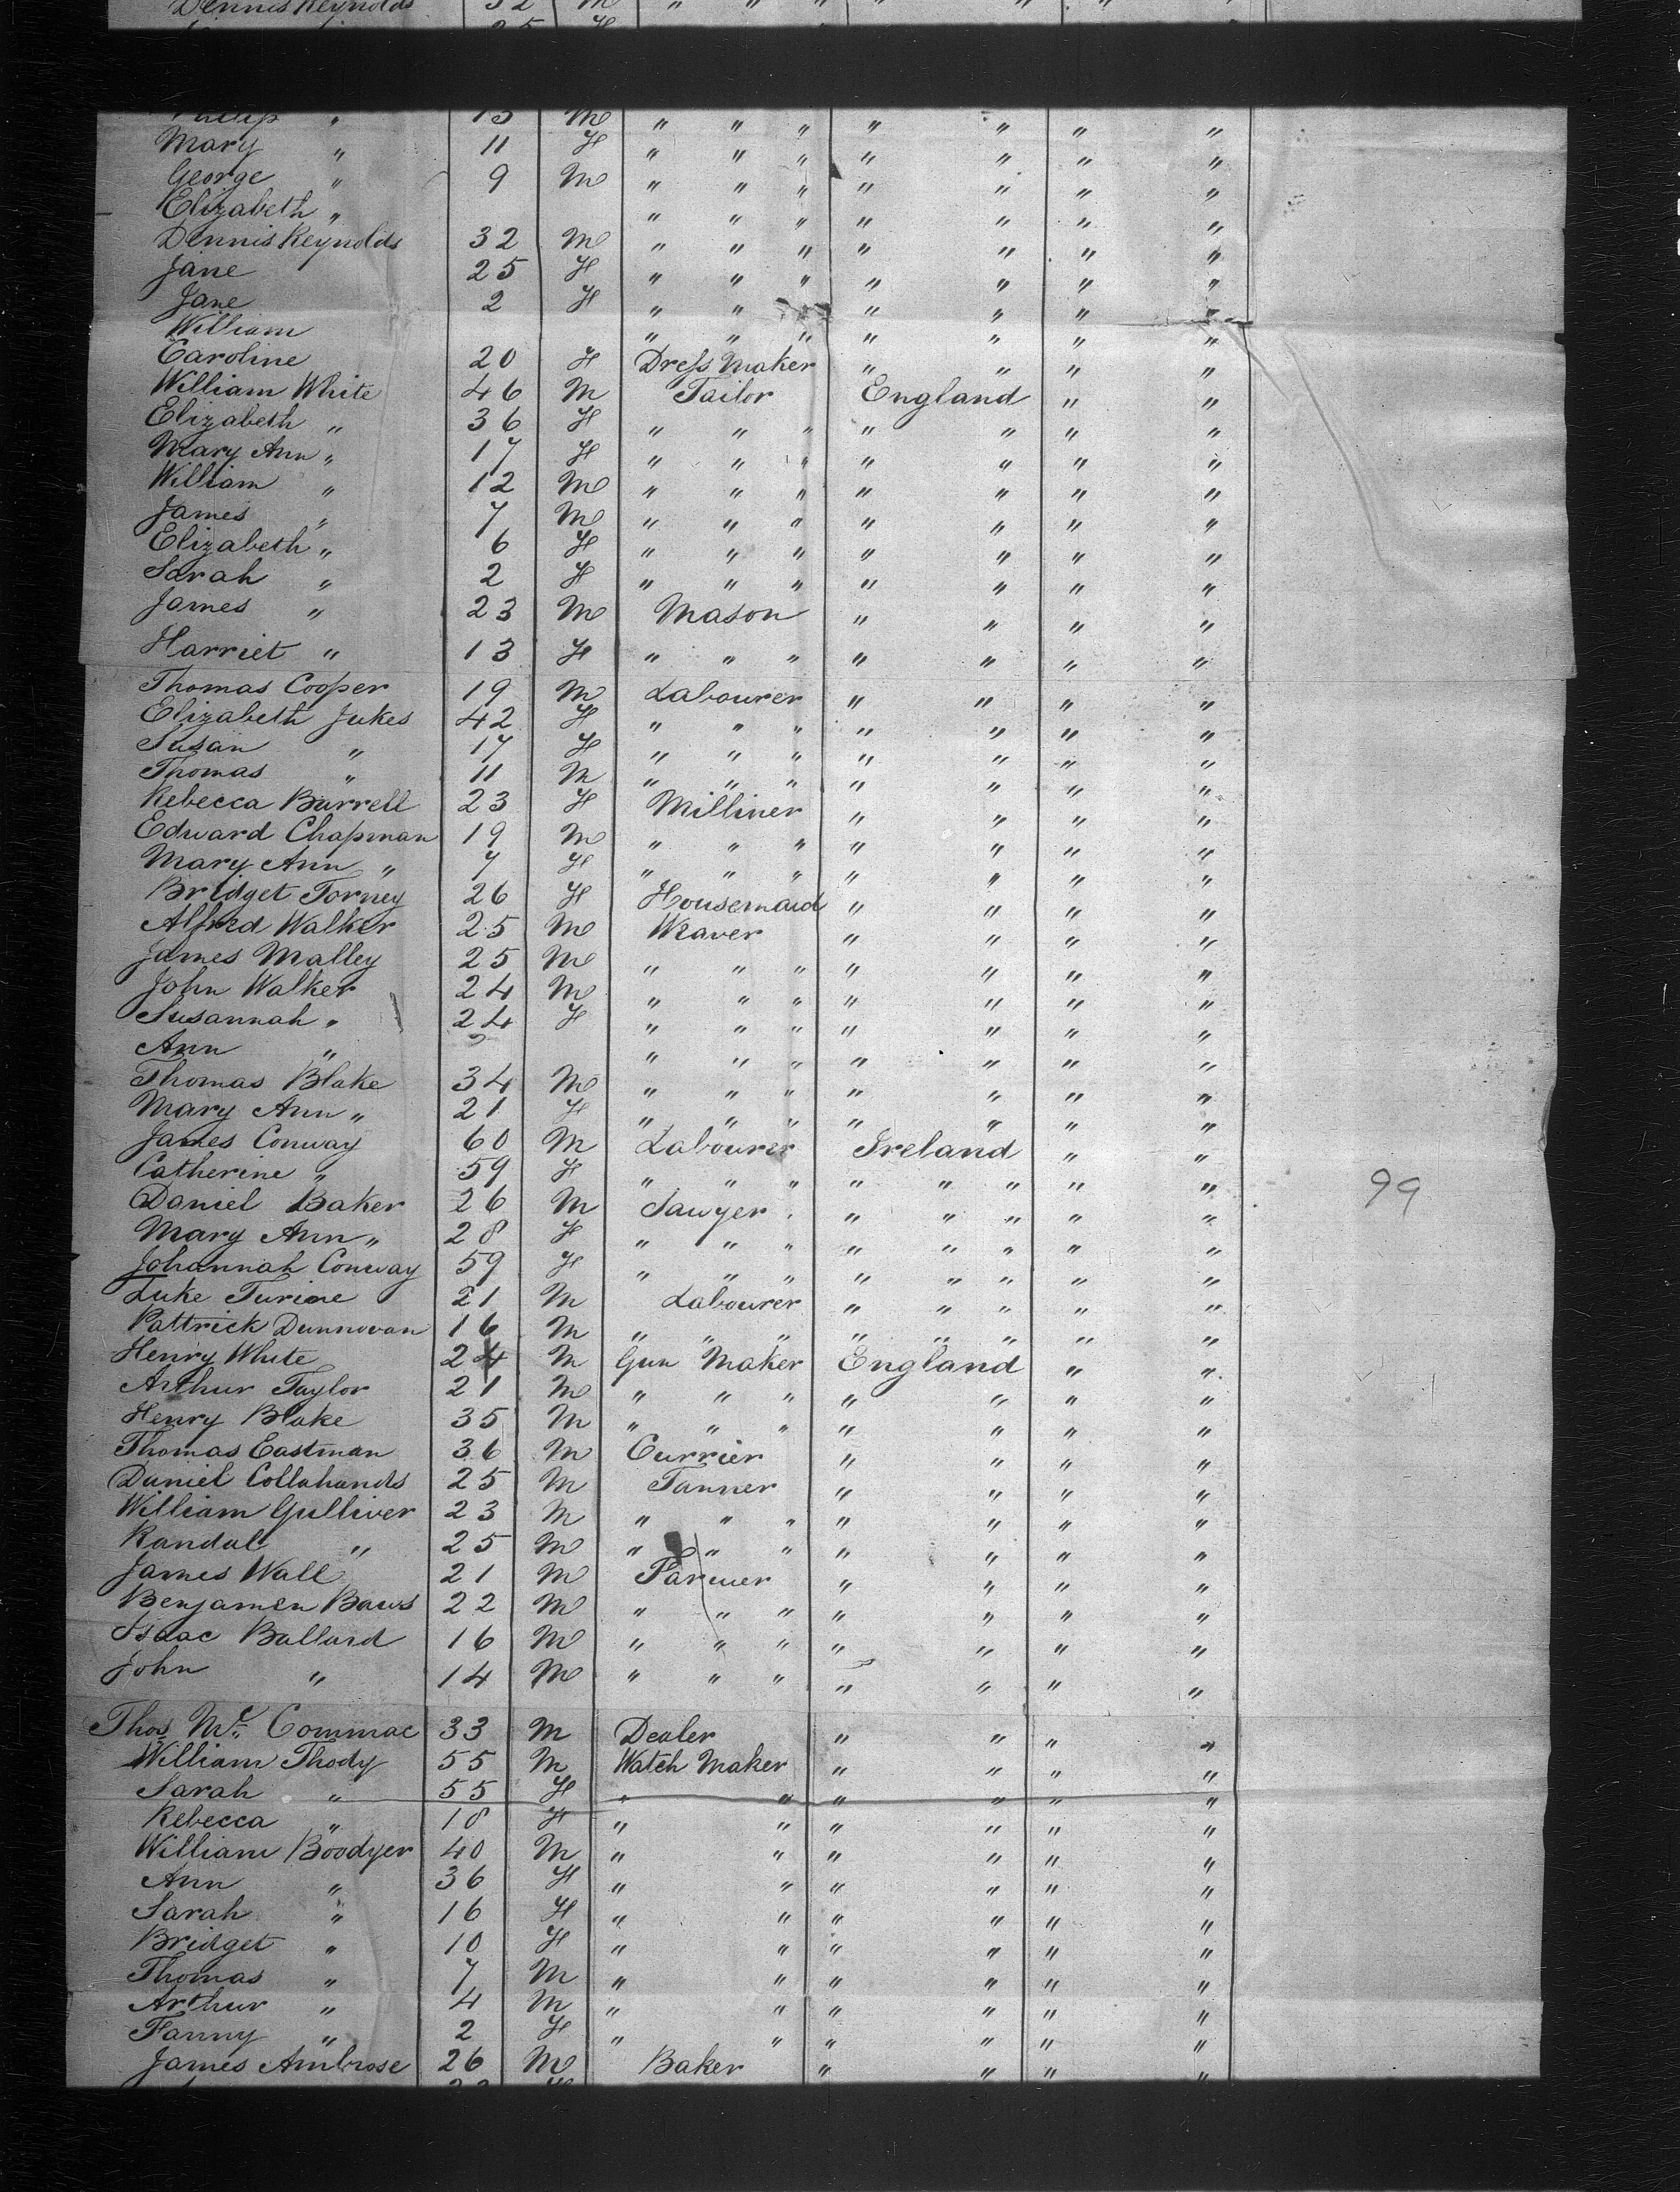 Dennis Reynolds 32 M " " " " " "
Philip " 13 M " " " " " " "
Mary " 11 F " " " " " " "
George " 9 M " " " " " " "
Elizabeth " " " " " " " "
Dennis Reynolds 32 M " " " " " " "
Jane 25 F " " " " " " "
Jane 2 F " " " " " "
William " " " " " " "
Caroline 20 F Dress Maker " " " "
William White 46 M Tailor England " "
Elizabeth " 36 F " " " " " " "
Mary Ann " 17 F " " " " " " "
William " 12 M " " " " " " "
James " 7 M " " " " " " "
Elizabeth " 6 F " " " " " " "
Sarah " 2 F " " " " " " "
James " 23 M Mason " " " "
Harriet " 13 F " " " " " " "
Thomas Cooper 19 M Labourer " " " "
Elizabeth Jukes 42 F " " " " " " "
Susan " 17 F " " " " " " "
Thomas " 11 M " " " " " " "
Rebecca Burrell 23 F Milliner " " " "
Edward Chapman 19 M " " " " " " "
Mary Ann " 7 F " " " " " " "
Bridget Torney 26 F Housemaid " " " "
Alfred Walker 25 M Weaver " " " "
James Malley 25 M " " " " " " "
John Walker 24 M " " " " " " "
Susannah " 24 F " " " " " " "
Ann " " " " " " " "
Thomas Blake 34 M " " " " " " "
Mary Ann " 21 F " " " " " " "
James Conway 60 M Labourer Ireland " "
Catherine " 59 F " " " " " " " "
Daniel Baker 26 M Sawyer " " " " " 99
Mary Ann " 28 F " " " " " " " "
Johannah Conway 59 F " " " " " " " "
Luke Turine 21 M Labourer " " " " "
Pattrick Dunnovan 16 M " " " " " " " "
Henry White 24 M Gun Maker England " "
Arthur Taylor 21 M " " " " " " "
Henry Blake 35 M " " " " " " "
Thomas Eastman 36 M Currier " " " "
Daniel Collahands 25 M Tanner " " " "
William Gulliver 23 M " " " " " " "
Randal " 25 M " " " " " " "
James Wall 21 M Farmer " " " "
Benjamen Baws 22 M " " " " " " "
Isaac Ballard 16 M " " " " " " "
John " 14 M " " " " " " "
Thos Mc Commac 33 M Dealer " " " "
William Thody 55 M Watch Maker " " " "
Sarah " 55 F " " " " " "
Rebecca " 18 F " " " " " "
William Boodyer 40 M " " " " " "
Ann " 36 F " " " " " "
Sarah " 16 F " " " " " "
Bridget " 10 F " " " " " "
Thomas " 7 M " " " " " "
Arthur " 4 M " " " " " "
Fanny " 2 F " " " " " "
James Ambrose 26 M Baker " " " "